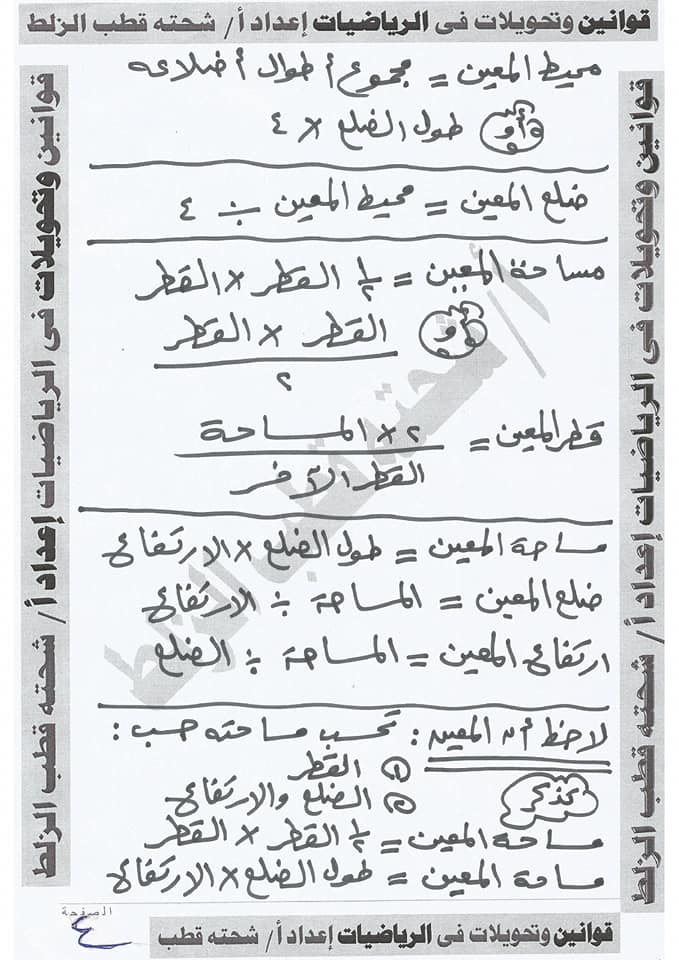 قوانين وتحويلات فى الرياضيات إعداد أ/ شحته قطب الزلط
محيط المعين = مجموع أطوال أضلاعه
أو طول الضلع × ٤
ضلع المعين = محيط المعين ÷ ٤
مساحة المعين = ١/٢ القطر × القطر
أو القطر × القطر
٢
قطر المعين = ٢ × المساحة
القطر الآخر
مساحة المعين = طول الضلع × الارتفاع
ضلع المعين = المساحة ÷ الارتفاع
ارتفاع المعين = المساحة ÷ الضلع
لاحظ أن المعين : تحسب مساحته حسب :
١ القطر
٢ الضلع والارتفاع
تذكر
مساحة المعين = ١/٢ القطر × القطر
مساحة المعين = طول الضلع × الارتفاع
الصفحة
٤
قوانين وتحويلات فى الرياضيات إعداد أ/ شحته قطب
قوانين وتحويلات فى الرياضيات إعداد أ/ شحته قطب الزلط
قوانين وتحويلات فى الرياضيات إعداد أ/ شحته قطب الزلط
أ/ شحته قطب الزلط